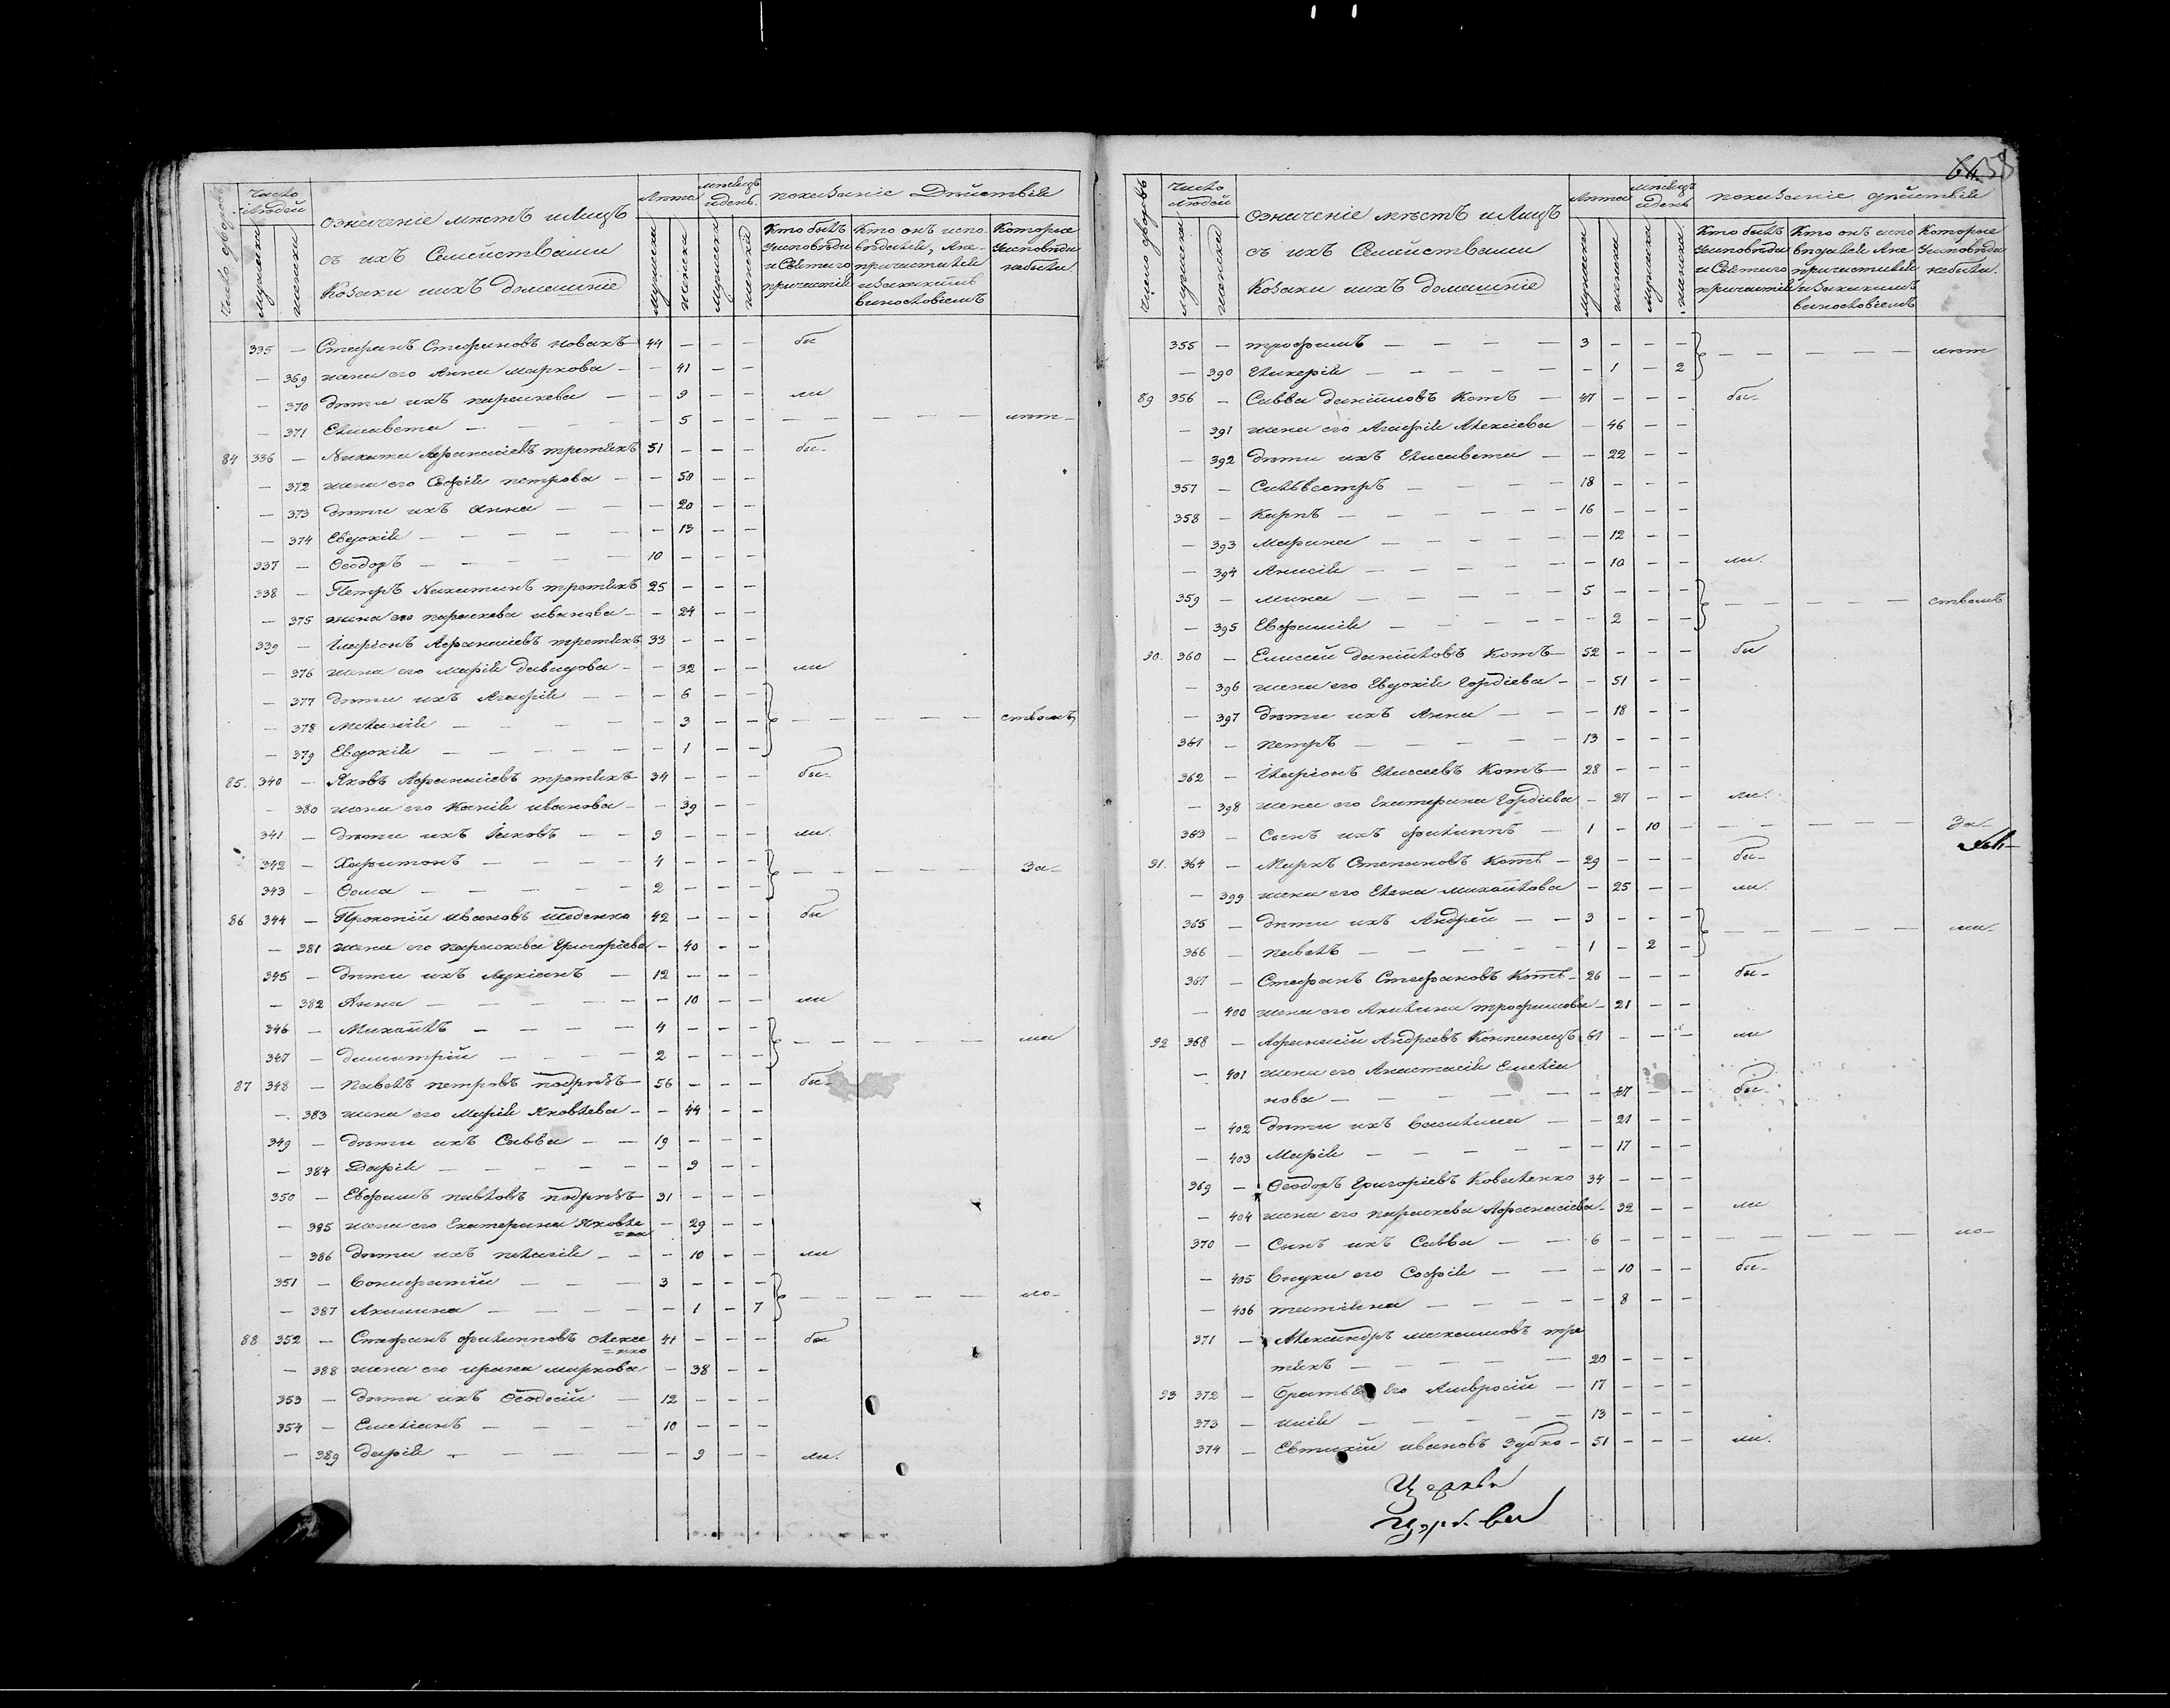 Число дворовъ
Число Людей
мужеска
женска
означеніе мѣстъ илицъ
съ ихъ Семействами
Козаки ихъ домашніе
Лѣта
мѣсяцъ
идень
показаніе Действія
Кто былъ
уисповѣди
и Святаго
причастія
Которые
уисповѣди
небыли
335 — Стефанъ Стефановъ новакъ — 44 — — — бы
— 369 жена его Анна маркова — — 41 — —
— 370 дѣти ихъ параскева — — 9 — — ли
— 371 Елисавета — — 5 — — — — — — — лѣт —
84 336 — Никита Афанасіевъ третякъ 51 — — — бы —
— 372 жена его Софія петрова — — 50 — —
— 373 дѣти ихъ анна — — — 20 — —
— 374 Евдокія — — — — — 13 — —
337 — Ѳеодоръ — — — — 10 — — —
338 — Петръ Никитинъ третякъ 25 — — —
— 375 жена его параскева иванова — — 24 — —
339 — Иларіонъ Афанасіевъ третякъ 33 — — —
— 376 жена его марія давидова — — 32 — — ли
— 377 дѣти ихъ Агафія — — — 6 — —
— 378 Меланія — — — — 3 — — — — — — — ствомъ
— 379 Евдокія — — — — — 1 — —
85. 340 — Яковъ Афанасіевъ третякъ — 34 — — — бы —
— 380 жена его Ксенія иванова — — 39 — —
341 — дѣти ихъ Іаковъ — — 9 — — — ли.
342 — Харитонъ — — — — 4 — — — — — — — — За —
343 — Ѳома — — — — — 2 — — —
86 344 — Прокопій ивановъ Шеденко 42 — — — бы
— 381 жена его параскева Григоріева — 40 — —
345 — дѣти ихъ Лукіанъ — 12 — — —
— 382 Анна — — — — — — 10 — — ли
346 — Михаилъ — — — — 4 — — — — — — — —
347 — димитрій — — — — 2 — — —
87 348 — павелъ петровъ подрѣзъ — 56 — — — бы —
— 383 жена его Марія Яковлева — — 44 — —
349 — дѣти ихъ Савва — — 19 — — —
— 384 Дарія — — — — — — 9 — —
350 — Ефимъ павловъ подрѣзъ — 31 — — —
— 385 жена его Екатерина Яковле — 29 — —
= ва
— 386 дѣти ихъ пелагія — — — 10 — — ли
351 — Бонифатій — — — 3 — — —
— 387 Акилина — — — — — 1 — 7 — — — — — ло —
88 352 — Стефанъ филипповъ Алексе 41 — — — бы
= нко
— 388 жена его ирина маркова — 38 — —
353 — дѣти ихъ Ѳеодосій — 12 — — —
354 — Емеліанъ — — — — 10 — — —
— 389 дарія — — — — — — 9 — — ли.
64
Число дворовъ
Число Людей
мужеска
женска
означеніе мѣстъ илицъ
съ ихъ Семействами
Козаки ихъ домашніе
Лѣта
мѣсяцъ
идень
показаніе дѣйствія
Кто былъ
уисповѣди
и Святаго
причастія
Которые
уисповѣди
небыли.
355 — трофимъ — — — — 3 — — — — — — — — лѣт
— 390 Гликерія — — — — — — 1 — 2
89 356 — Савва даниловъ Котъ — 47 — — — бы —
— 391 жена его Агафія Алексіева — 46 — —
— 392 дѣти ихъ Елисавета — — 22 — —
357 — Сильвестръ — — — — 18 — — —
358 — Карпъ — — — — — — 16 — — —
— 393 Марина — — — — — — 12 — —
— 394 Анисія — — — — — — 10 — — ли.
359 — мина — — — — — 5 — — — — — — — — ствомъ
— 395 Евфимія — — — — — — 2 — —
90. 360 — Елисей даніиловъ Котъ — 52 — — — бы
— 396 жена его Евдокія Гордіева — — 51 — —
— 397 дѣти ихъ Анна — — — 18 — —
361 — петръ — — — — — 13 — — —
362 — Иларіонъ Елисеевъ Котъ — 28 — — —
— 398 жена его Екатерина Гордіева — 27 — — ли.
363 — Сынъ ихъ филиппъ — 1 — 10 — — — — — — За —
91. 364 — Маркъ Степановъ Котъ — 29 — — — бы —
— 399 жена его Елена михайлова — 25 — — ли.
365 — дѣти ихъ Андрей — — 3 — — —
366 — павелъ — — — — — 1 — 2 — — — — — —
367 — Стефанъ Стефановъ Котъ — 26 — — — бы —
— 400 жена его Акилина трофимова — 21 — —
92 368 — Афанасій Андреевъ 61 — — — ли
— 401 жена его Анастасія Емелія
нова — — — — — — — 47 — — бы —
— 402 дѣти ихъ Василиса — — 21 — —
— 403 Марія — — — — — — 17 — —
369 — Ѳеодоръ Григоріевъ Коваленко 34 — — —
— 404 жена его параскева Афанасіева — 32 — — ли
370 — Сынъ ихъ Савва — — 6 — — — — — — — — ло —
— 405 внуки его Софія — — — 10 — — бы —
— 406 татіяна — — — — — 8 — —
371 — Александръ максимовъ тре
тякъ — — — — — 20 — — —
93 372 — братья Его Амвросій — 17 — — —
373 — илія — — — — — — 13 — — —
374 — Евтихій ивановъ Зубко — 51 — — — ли.
Церкви